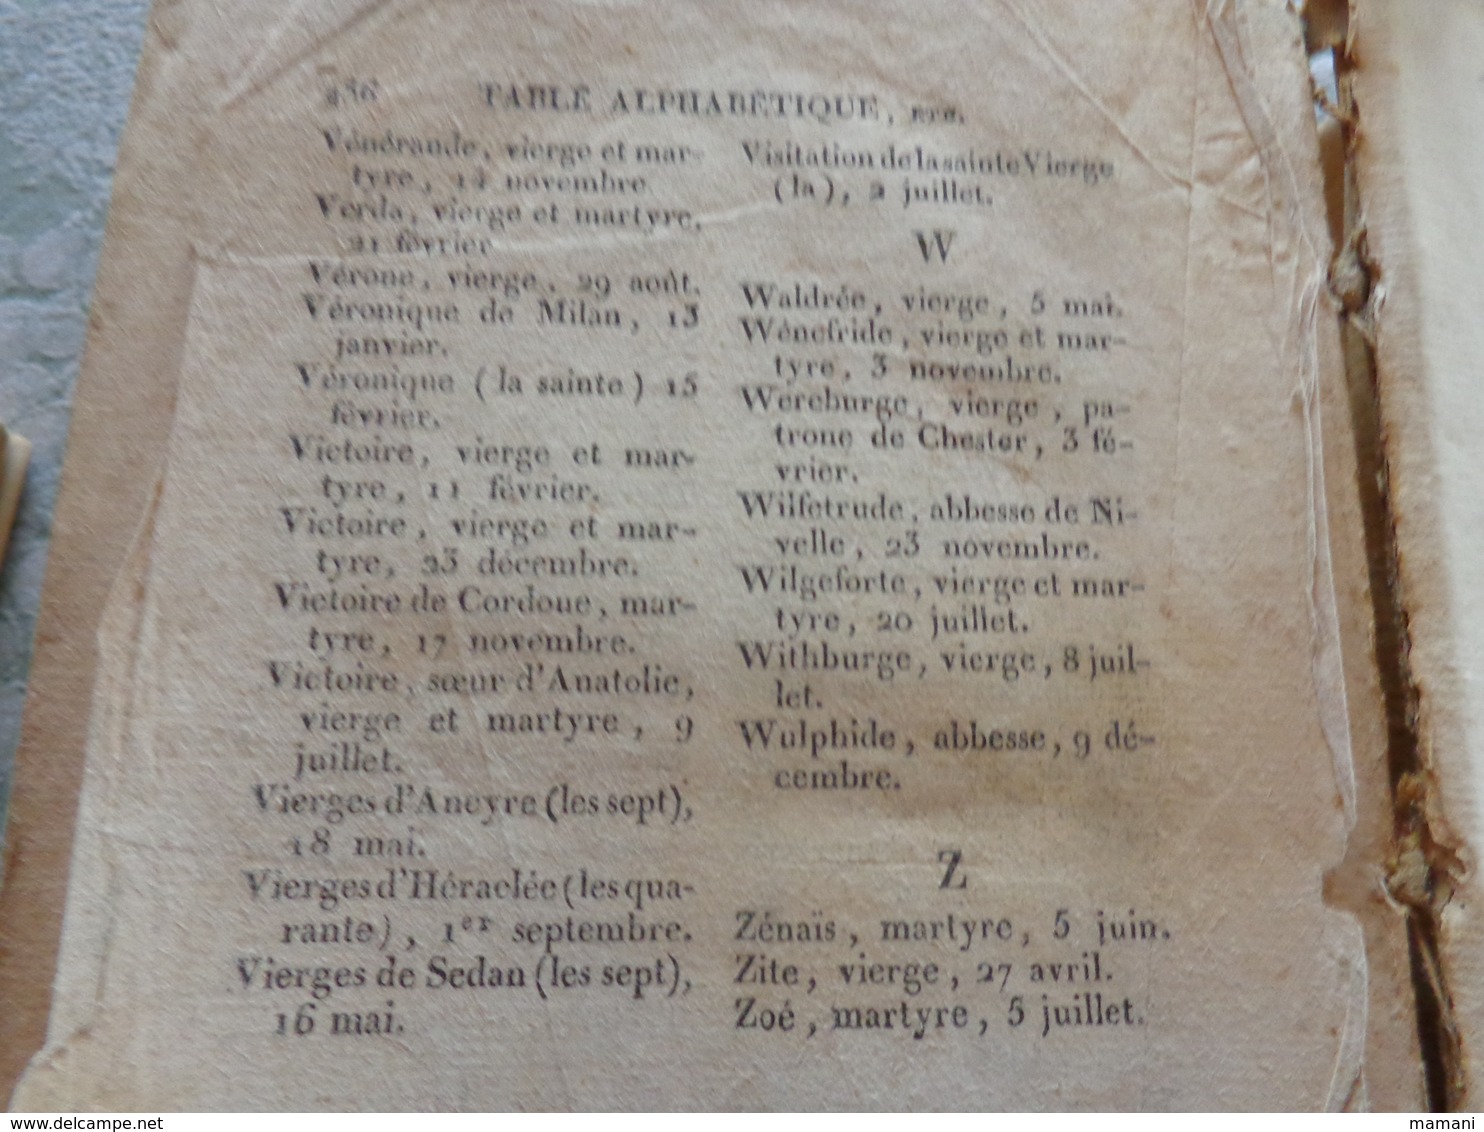 TABLE ALPHABÉTIQUE, ETC.
Vénérande, vierge et mar-
tyre, 14 novembre.
Verda, vierge et martyre,
21 février
Vérone, vierge, 29 août.
Véronique de Milan, 13
janvier.
Véronique (la sainte) 15
février.
Victoire, vierge et mar-
tyre, 11 février.
Victoire, vierge et mar-
tyre, 23 décembre.
Victoire de Cordoue, mar-
tyre, 17 novembre.
Victoire, sœur d'Anatolie,
vierge et martyre, 9
juillet.
Vierges d'Ancyre (les sept),
18 mai.
Vierges d'Héraclée (les qua-
rante), 1er septembre.
Vierges de Sedan (les sept),
16 mai.
Visitation de la sainte Vierge
(la), 2 juillet.
W
Waldrée, vierge, 5 mai.
Wénefride, vierge et mar-
tyre, 3 novembre.
Wereburge, vierge, pa-
trone de Chester, 3 fé-
vrier.
Wilfetrude, abbesse de Ni-
velle, 23 novembre.
Wilgeforte, vierge et mar-
tyre, 20 juillet.
Withburge, vierge, 8 juil-
let.
Wulphide, abbesse, 9 dé-
cembre.
Z
Zénaïs, martyre, 5 juin.
Zite, vierge, 27 avril.
Zoé, martyre, 5 juillet.
www.delcampe.net
mamani